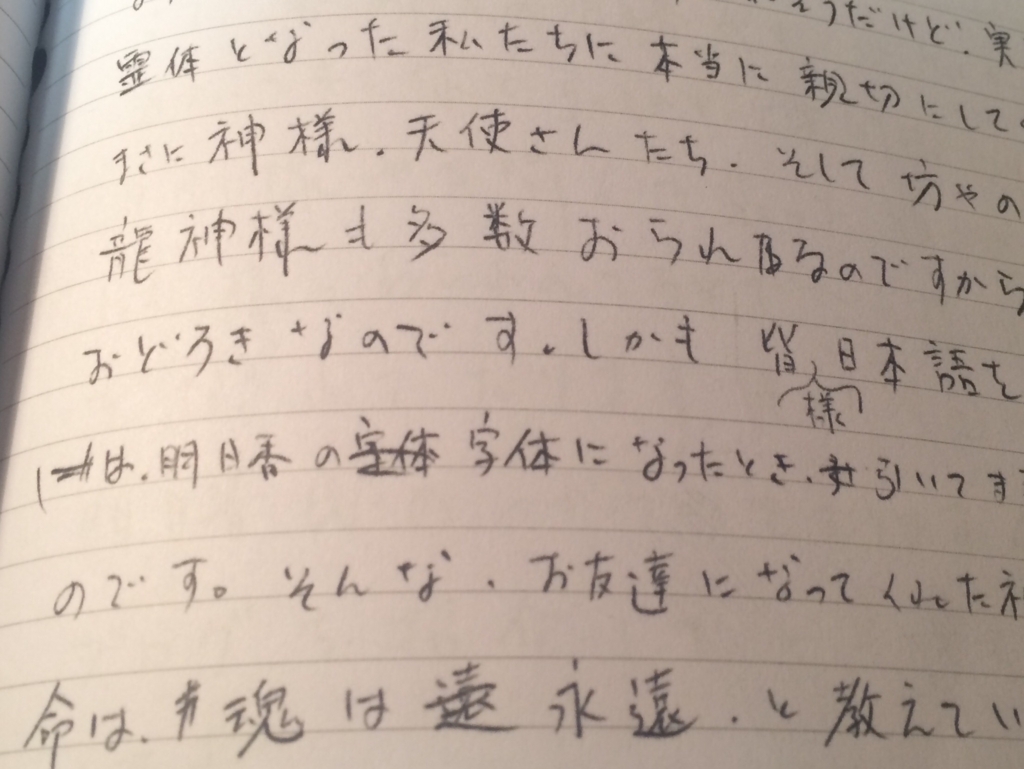 うだけど、実
霊体となった私たちに本当に親切にして
まさに神様、天使さんたち、そして坊やの
龍神様も多数おられるのですから
おどろきなのです。しかも皆様、日本語を
は、明月香の字体になったとき、引いてま
のです。そんな、お友達になってくれた
命は、魂は永遠、と教えてい